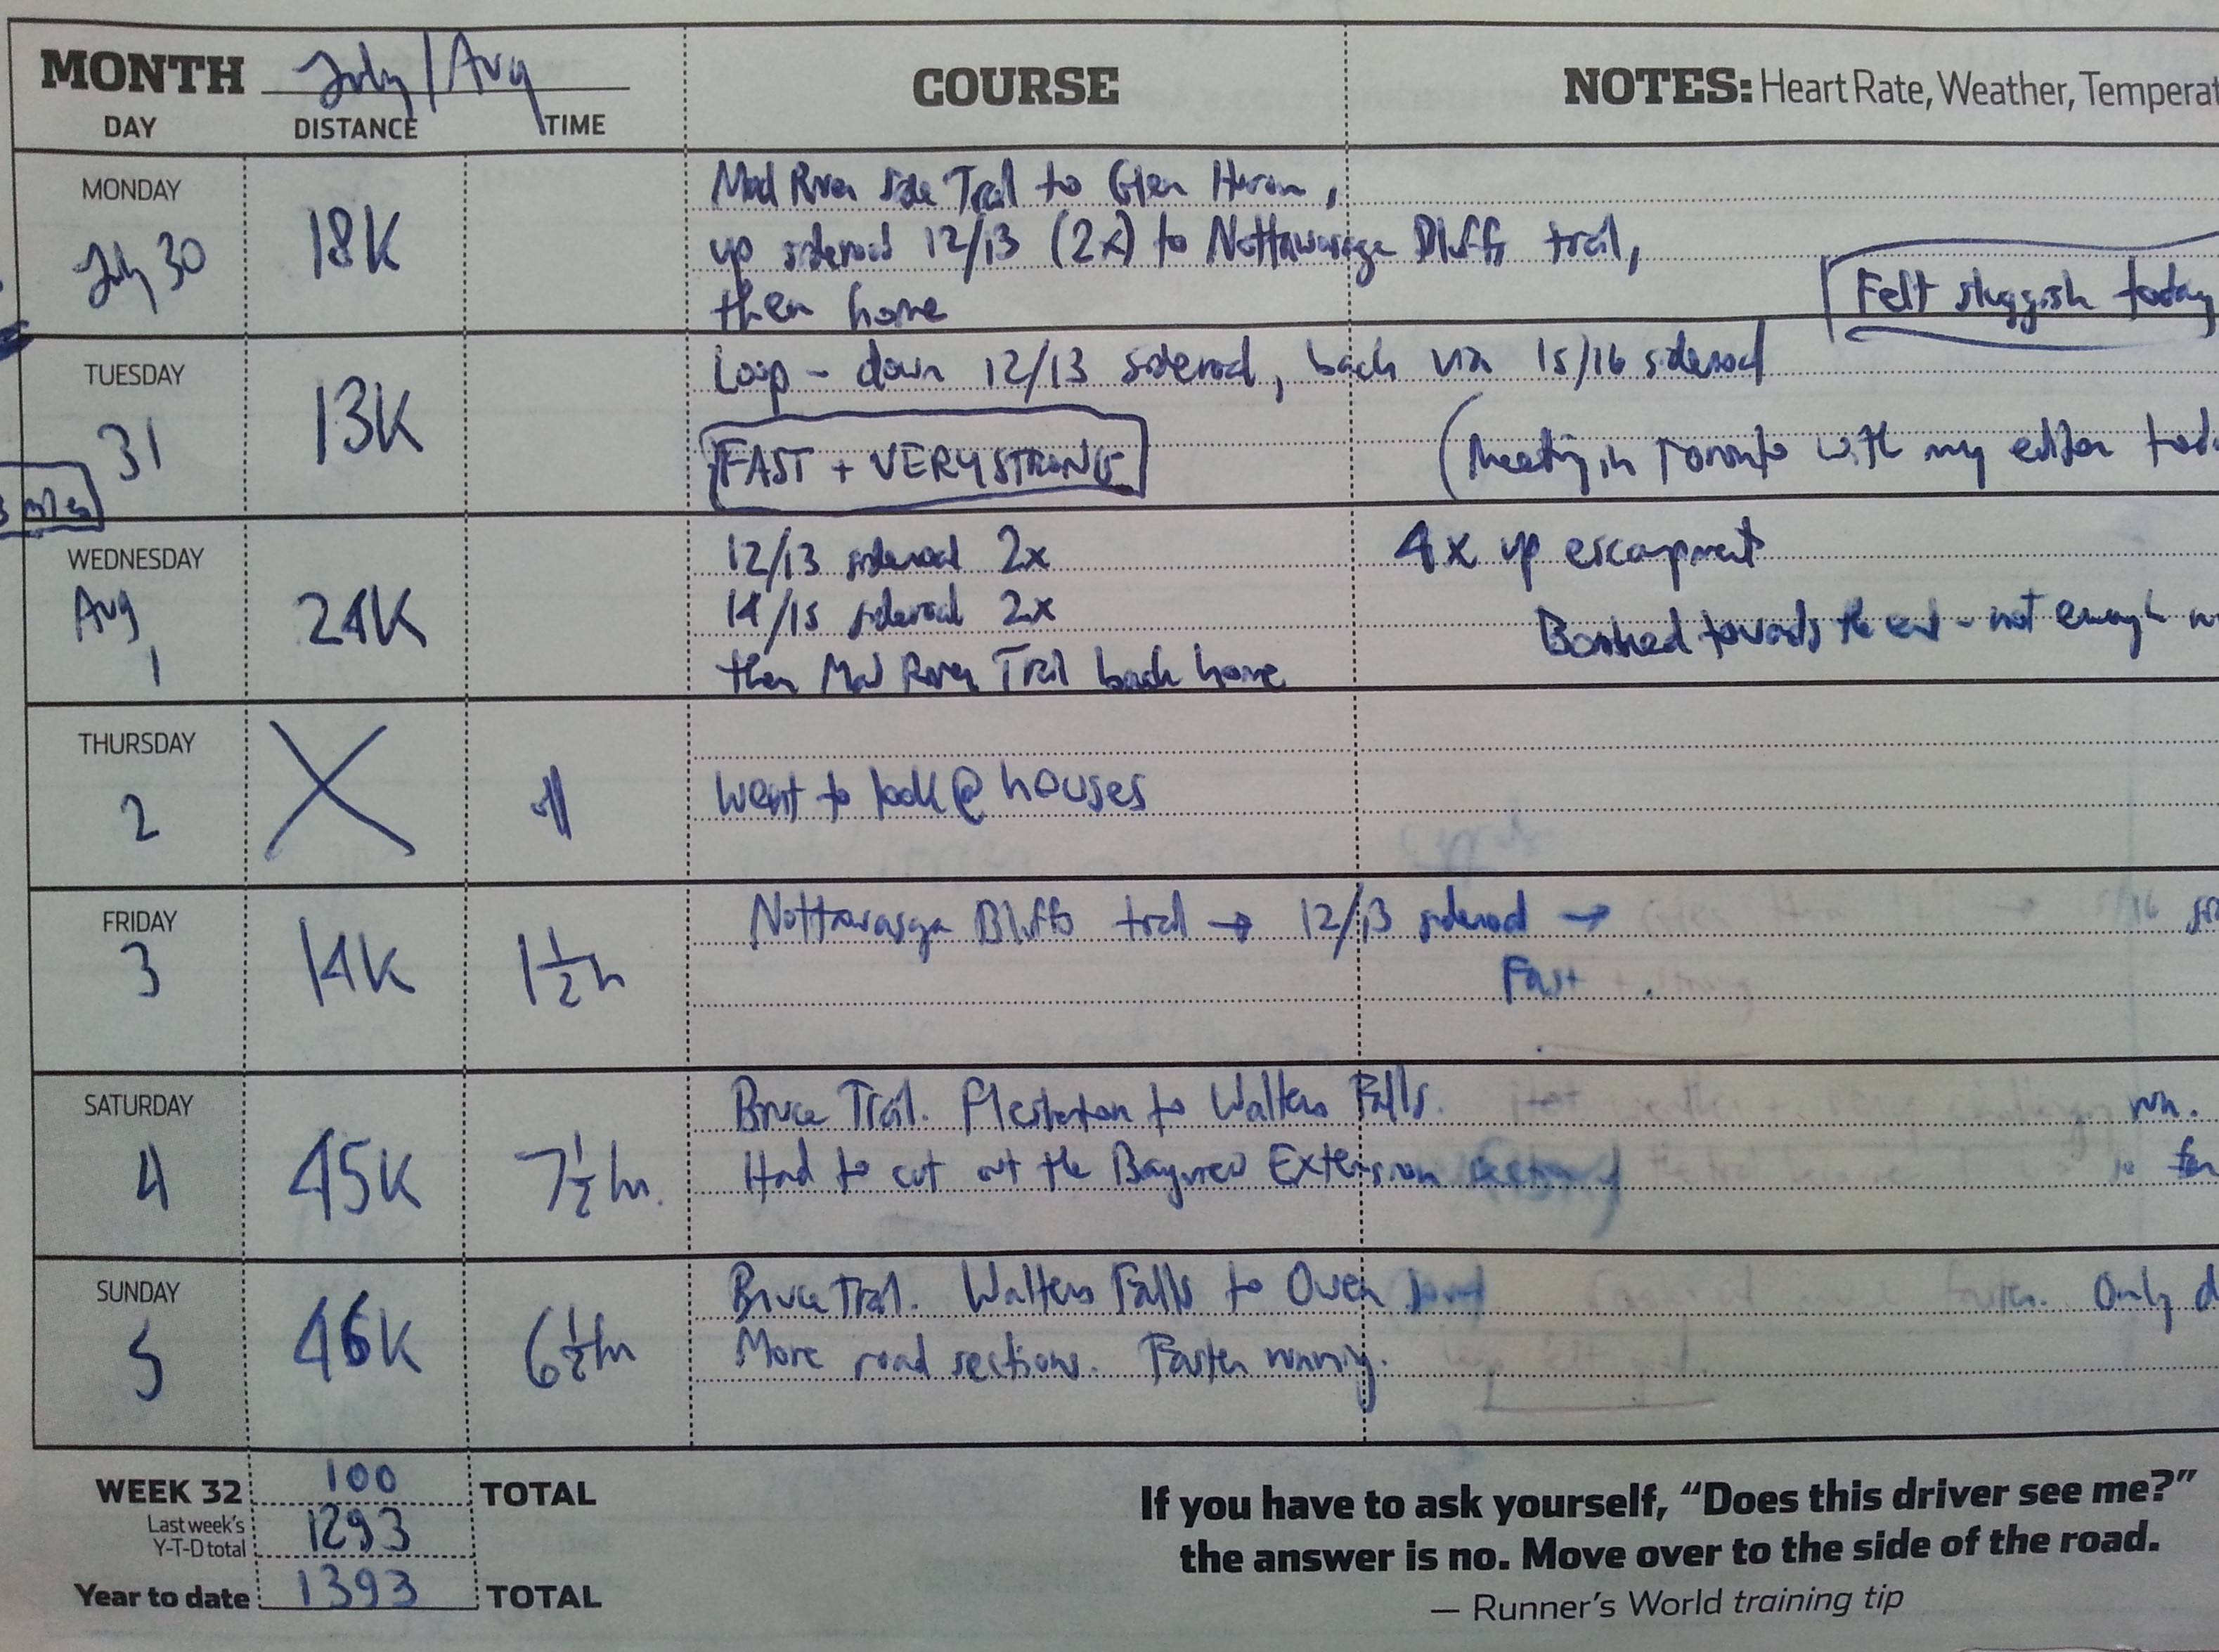 MONTH July/Aug
COURSE
NOTES: Heart Rate, Weather, Temperat
DAY DISTANCE TIME
MONDAY
July 30
18K
Mad River side Trail to Glen Huron,
up sideroad 12/13 (2x) to Nottawasaga Bluffs trail,
then home
Felt sluggish today
TUESDAY
31
13K
Loop - down 12/13 sideroad, back via 15/16 sideroad
FAST + VERY STRONG
(Meeting in Toronto with my editor
WEDNESDAY
Aug
1
24K
12/13 sideroad 2x
14/15 sideroad 2x
then Mad River Trail back home
4x up escarpment
Bonked towards the end - not enough
THURSDAY
2
X
off
Went to look @ houses
FRIDAY
3
14K
1 1/2 h
Nottawasaga Bluffs trail → 12/13 sideroad →
Fast
SATURDAY
4
45K
7 1/2 hr.
Bruce Trail. Flesherton to Walters Falls.
Had to cut out the Bayview Extension
run.
SUNDAY
5
46K
6 1/2 hr
Bruce Trail. Walters Falls to Owen Sound
Only d
More road sections. Faster running.
WEEK 32 100 TOTAL
Last week's
Y-T-D total 1293
Year to date 1393 TOTAL
If you have to ask yourself, “Does this driver see me?”
the answer is no. Move over to the side of the road.
— Runner's World training tip